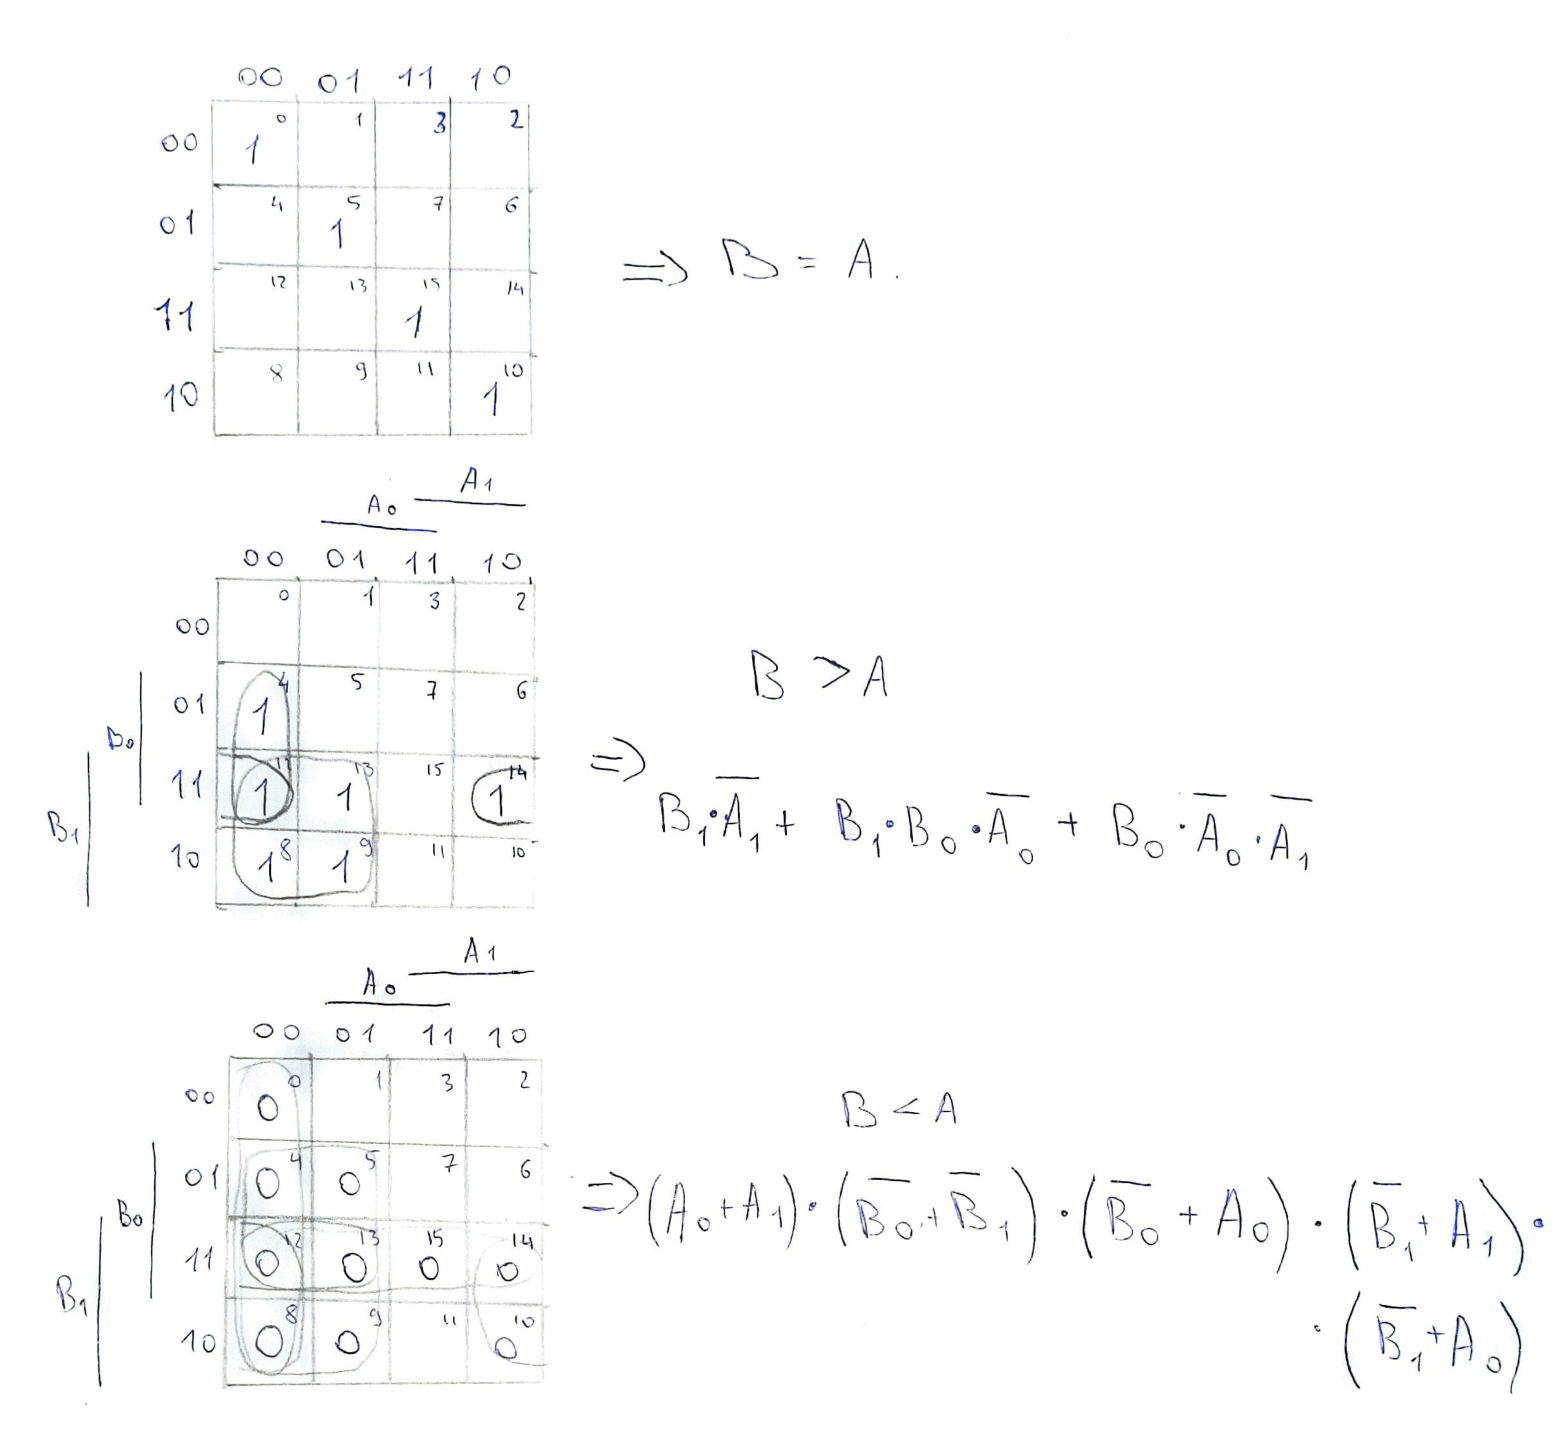 00 01 11 10
00 1 0 1 3 2
01 4 1 5 7 6
11 12 13 1 15 14
10 8 9 11 1 10
⇒ B = A.
A1
A0
00 01 11 10
00 0 1 3 2
01 1 4 5 7 6
B0
11 1 1 13 15 1 14
B1
10 1 8 1 9 11 10
B > A
⇒ B₁·A̅₁ + B₁·B₀·A̅₀ + B₀·A̅₀·A̅₁
A1
A0
00 01 11 10
00 0 0 1 3 2
01 0 4 0 5 7 6
B0
11 0 12 0 13 0 15 0 14
B1
10 0 8 0 9 11 0 10
B < A
⇒ (A₀+A₁)·(B̅₀+B̅₁)·(B̅₀+A₀)·(B̅₁+A₁)·
·(B̅₁+A₀)